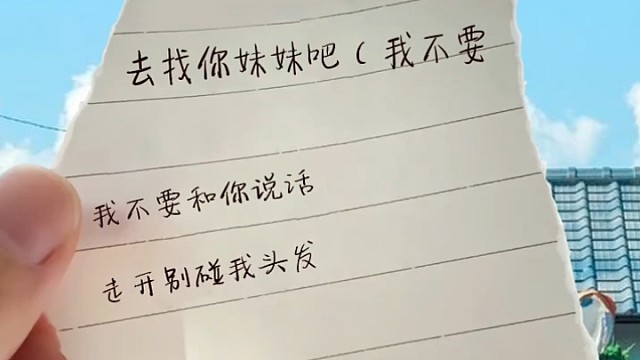 去找你妹妹吧（我不要
我不要和你说话
走开别碰我头发